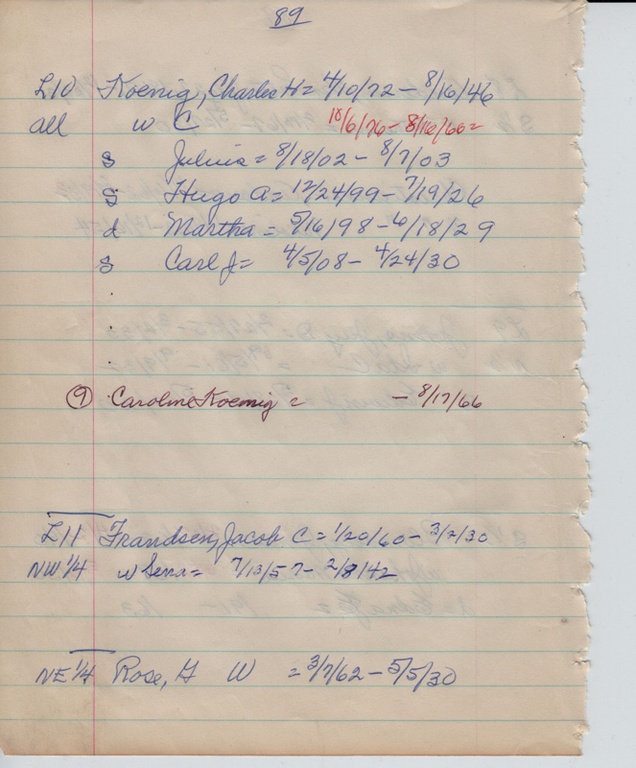 89
L10 Koenig, Charles H = 4/10/72 - 8/16/46
all w C 10/6/76 - 8/16/66 =
s Julius = 8/18/02 - 8/7/03
s Hugo A = 12/24/99 - 7/19/26
d Martha = 5/16/98 - 6/18/29
s Carl J = 4/5/08 - 4/24/30
9 Caroline Koenig = - 8/17/66
L11 Frandsen, Jacob C = 1/20/60 - 3/2/30
NW 1/4 w Sena = 7/13/57 - 2/8/42
NE 1/4 Rose, H W = 3/7/62 - 5/5/30